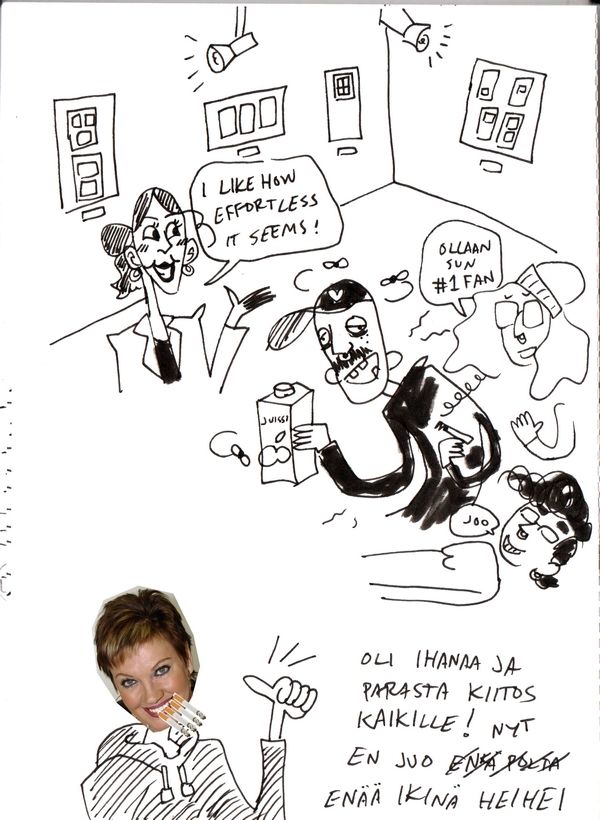 I LIKE HOW
EFFORTLESS
IT SEEMS!
OLLAAN
SUN
#1 FAN
JUISSI
JOO
OLI IHANAA JA
PARASTA KIITOS
KAIKILLE! NYT
EN JUO ENSÄ POLTA
ENÄÄ IKINÄ HEIHEI